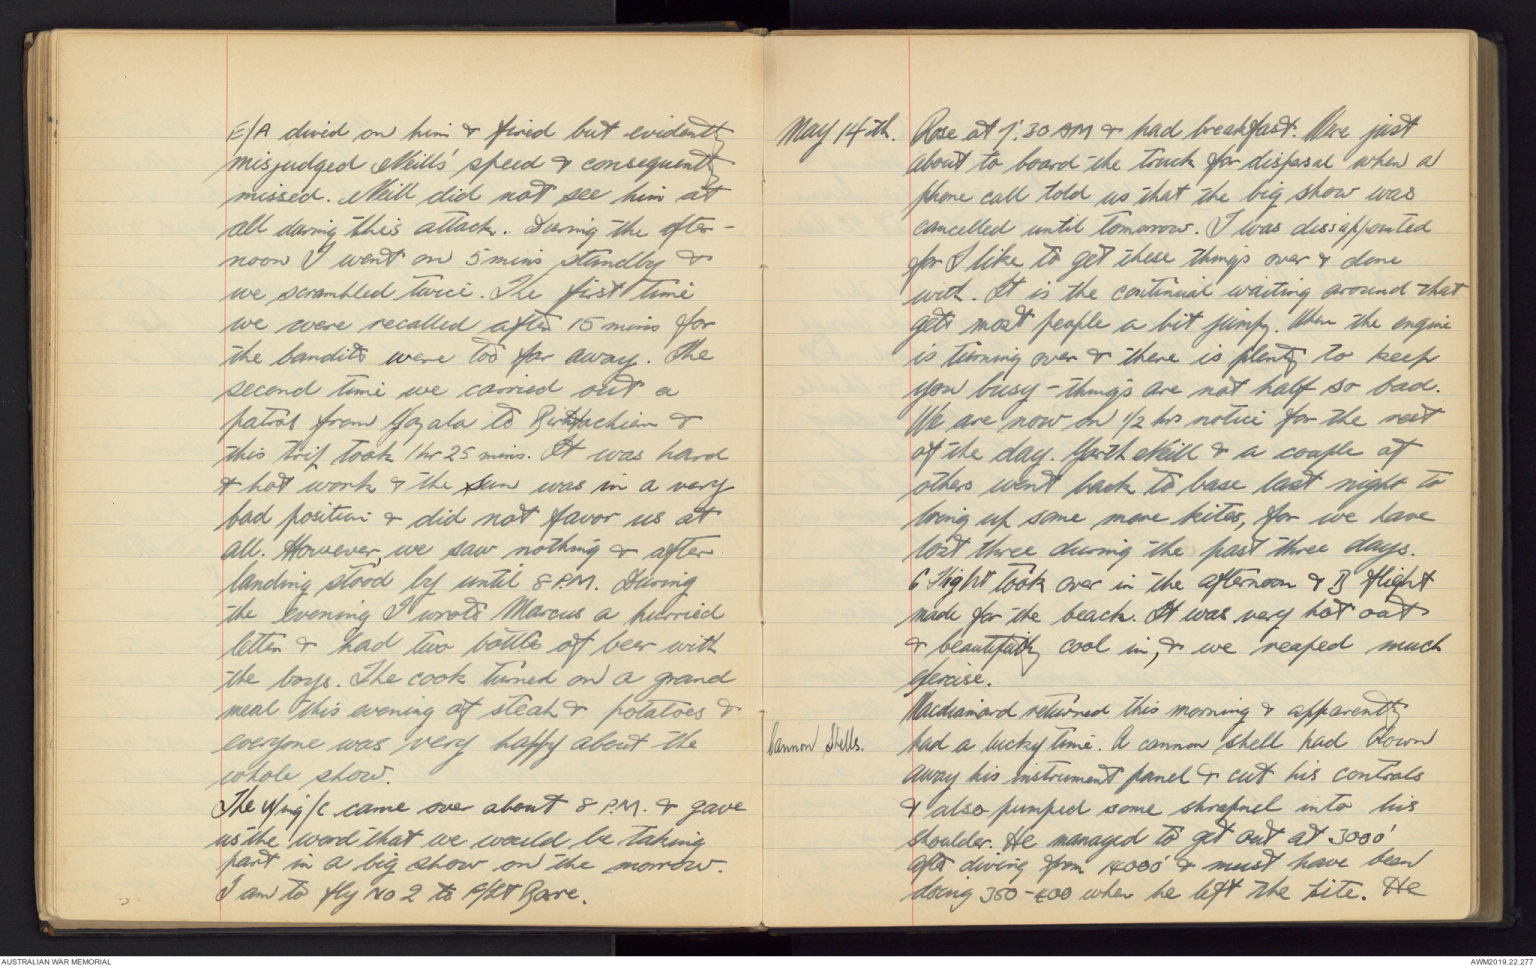 E/A dived on him & fired but evidently
misjudged Neill's speed & consequently
missed. Neill did not see him at
all during this attack. During the after-
noon I went on 5 mins standby &
we scrambled twice. The first time
we were recalled after 15 mins for
the bandits were too far away. The
second time we carried out a
patrol from Gazala to Bir Hachiem &
this trip took 1 hr 25 mins. It was hard
& hot work & the sun was in a very
bad position & did not favor us at
all. However, we saw nothing & after
landing stood by until 8 P.M. During
the evening I wrote Marcus a hurried
letter & had two bottles of beer with
the boys. The cook turned on a grand
meal this evening of steak & potatoes &
everyone was very happy about the
whole show.
The W/ing/C came over about 8 P.M. & gave
us the word that we would be taking
part in a big show on the morrow.
I am to fly No 2 to F/Lt
May 14th. Rose at 7.30 AM & had breakfast. Were just
about to board the truck for dispersal when a
phone call told us that the big show was
cancelled until tomorrow. I was dissappointed
for I like to get these things over & done
with. It is the continual waiting around that
gets most people a bit jumpy. When the engine
is turning over & there is plenty to keep
you busy - things are not half so bad.
We are now on 1/2 hrs notice for the rest
of the day. Garth Neill & a couple of
others went back to base last night to
bring up some more kites, for we have
lost three during the past three days.
C Flight took over in the afternoon & B flight
made for the beach. It was very hot out
& beautifully cool in, & we reaped much
exercise.
returned this morning & apparently
Cannon Shells. had a lucky time. A cannon shell had blown
away his instrument panel & cut his controls
& also pumped some shrapnel into his
shoulder. He managed to get out at 3000'
after diving from 14000' & must have been
doing 350-400 when he left the kite. He
AUSTRALIAN WAR MEMORIAL
AWM2019.22.277